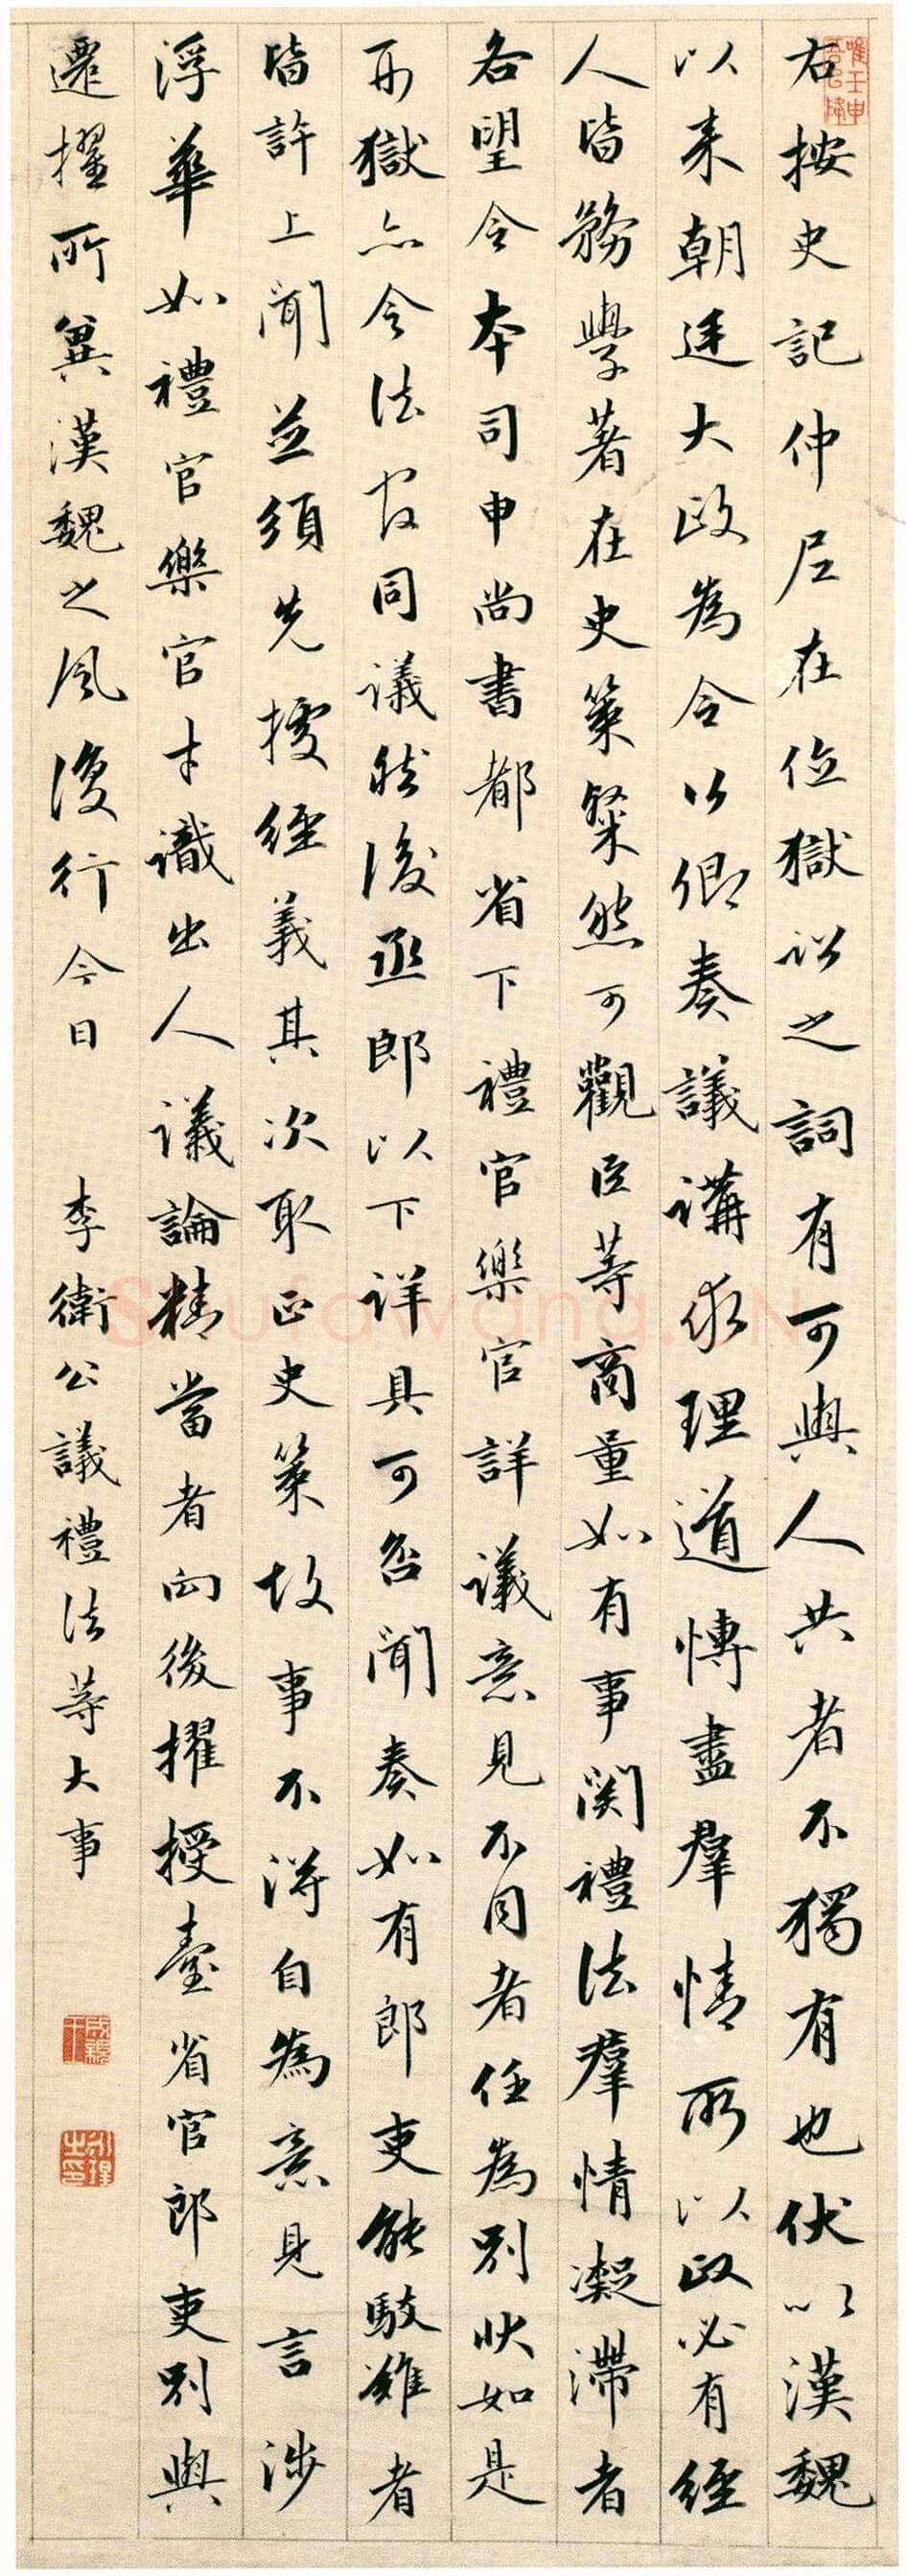 右按史記仲尼在位獄訟之詞有可與人共者不獨有也伏以漢魏
以来朝廷大政為令公卿奏議講求理道博盡羣情所以政必有經
人皆務學著在史策粲然可觀臣等商量如有事関禮法羣情凝滯者
各望令本司申尚書都省下禮官樂官詳議意見不同者任為別狀如是
刑獄亦令法官同議然後丞郎以下详具可否聞奏如有郎吏能駁難者
皆許上聞並須先據經義其次取正史策故事不得自為意見言涉
浮華如禮官樂官才識出人議論精當者向後擢授臺省官郎吏別與
遷擢所冀漢魏之風復行今日 李衛公議禮法等大事
唯壬申吾以降
成親王
永瑆之印
Shufawang.CN